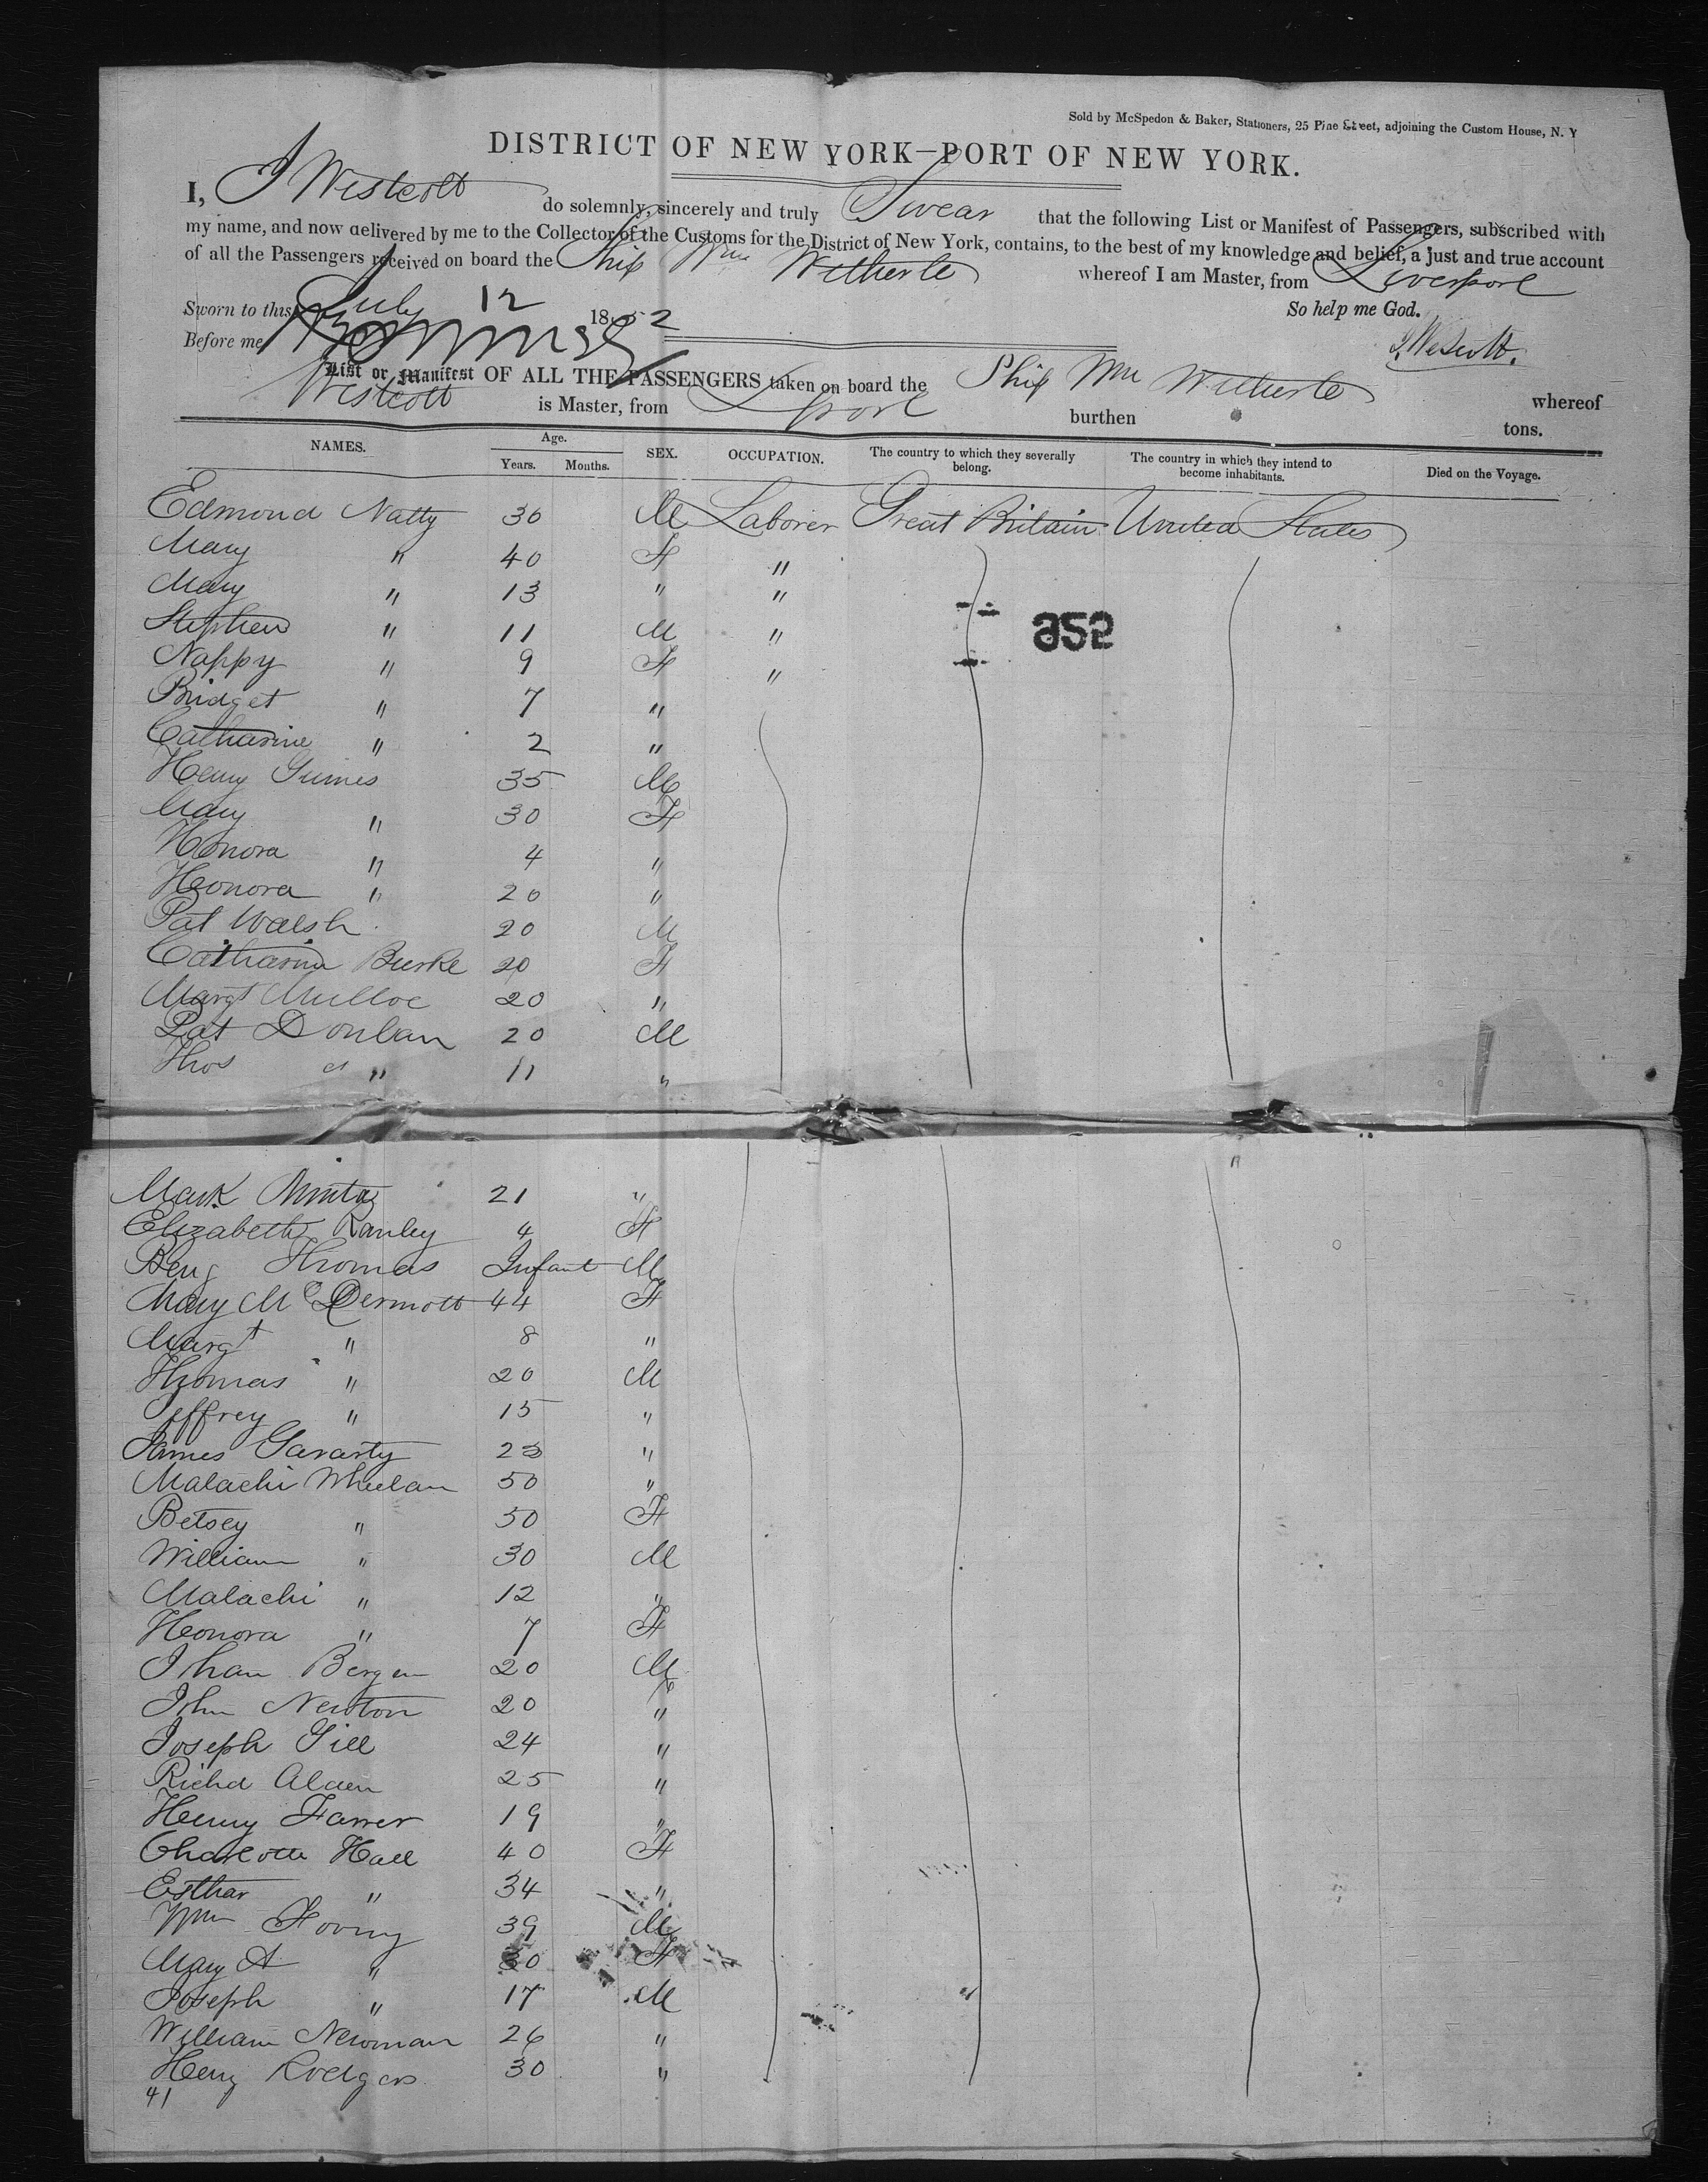 Sold by McSpedon & Baker, Stationers, 25 Pine Street, adjoining the Custom House, N. Y
DISTRICT OF NEW YORK—PORT OF NEW YORK.
I, J Westcott do solemnly, sincerely and truly Swear that the following List or Manifest of Passengers, subscribed with
my name, and now delivered by me to the Collector of the Customs for the District of New York, contains, to the best of my knowledge and belief, a just and true account
of all the Passengers received on board the Ship Wm Witherle whereof I am Master, from Liverpool
So help me God.
Sworn to this July 12 1852
J. Westcott.
Before me
List or Manifest OF ALL THE PASSENGERS taken on board the Ship Wm Witherle whereof
Westcott is Master, from Lpool burthen tons.
NAMES. Age. Years. Months. SEX. OCCUPATION. The country to which they severally belong. The country in which they intend to become inhabitants. Died on the Voyage.
Edmond Natty 30 M Laborer Great Britain United States
Mary " 40 F "
Mary " 13 " "
Stephen " 11 M "
952
Nappy " 9 F "
Bridget " 7 "
Catharine " 2 "
Henry 35 M
Mary " 30 F
Honora " 4 "
Honora " 20 "
Pat Walsh 20 M
Catharine Burke 20 F
Margt Mulloe 20 "
Pat Donlan 20 M
Thos " 11 "
Mark 21 "
Elizabeth Ranley 4 F
Benj Thomas Infant M
Mary McDermott 44 F
Margt " 8 "
Thomas " 20 M
Jeffrey " 15 "
James Gavarty 23 "
Malachi Whelan 50 "
Betsey " 50 F
William " 30 M
Malachi " 12 "
Honora " 7 F
Jhan Bergen 20 M
John Newton 20 "
Joseph Gill 24 "
Richd Alden 25 "
Henry Farrer 19 "
Charlotte Hall 40 F
Esthar " 34 "
Wm 39 M
Mary A " 30 F
Joseph " 17 M
William Newman 26 "
Henry Rodgers 30 "
41